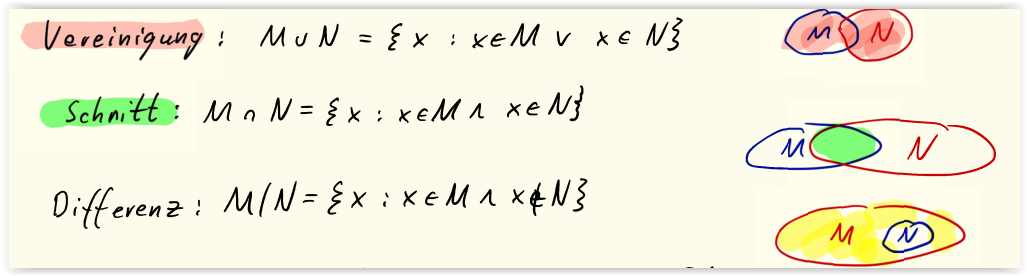 Vereinigung : M ∪ N = { x : x ∈ M ∨ x ∈ N }
M N
Schnitt : M ∩ N = { x : x ∈ M ∧ x ∈ N }
M N
Differenz : M / N = { x : x ∈ M ∧ x ∉ N }
M N